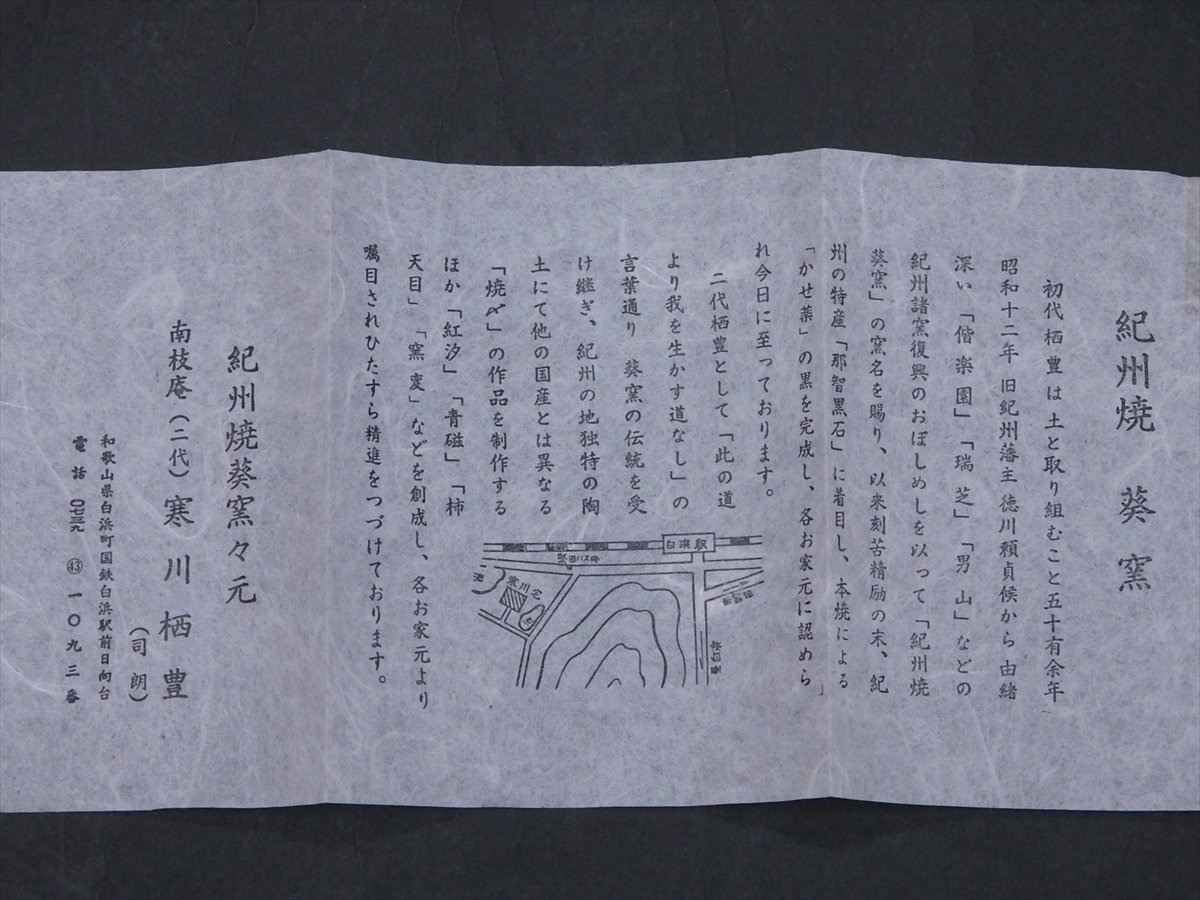 紀州焼 葵窯
初代栖豊は土と取り組むこと五十有余年
昭和十二年 旧紀州藩主 徳川頼貞候から 由緒
深い「偕楽園」「瑞芝」「男山」などの
紀州諸窯復興のおぼしめしを以って「紀州焼
葵窯」の窯名を賜り、以来刻苦精励の末、紀
州の特産「那智黒石」に着目し、本焼による
「かせ薬」の黒を完成し、各お家元に認めら
れ今日に至っております。
二代栖豊として「此の道
より我を生かす道なし」の
言葉通り 葵窯の伝統を受
け継ぎ、紀州の地独特の陶
土にて他の国産とは異なる
「焼〆」の作品を制作する
ほか「紅汐」「青磁」「柿
天目」「窯変」などを創成し、各お家元より
嘱目されひたすら精進をつづけております。
白浜駅
紀州焼葵窯々元
南枝庵(二代)寒川栖豊
(司朗)
和歌山県白浜町国鉄白浜駅前日向台
電話 〇七三九 ㊸ 一〇九三番